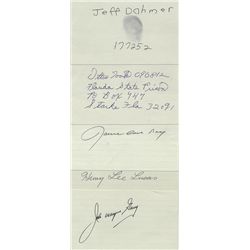 Jeff Dahmer
177252
Ottis Toole 090812
Florida State Prison
PO Box 747
Starke Fla 32091
Henry Lee Lucas
John Wayne Gacy